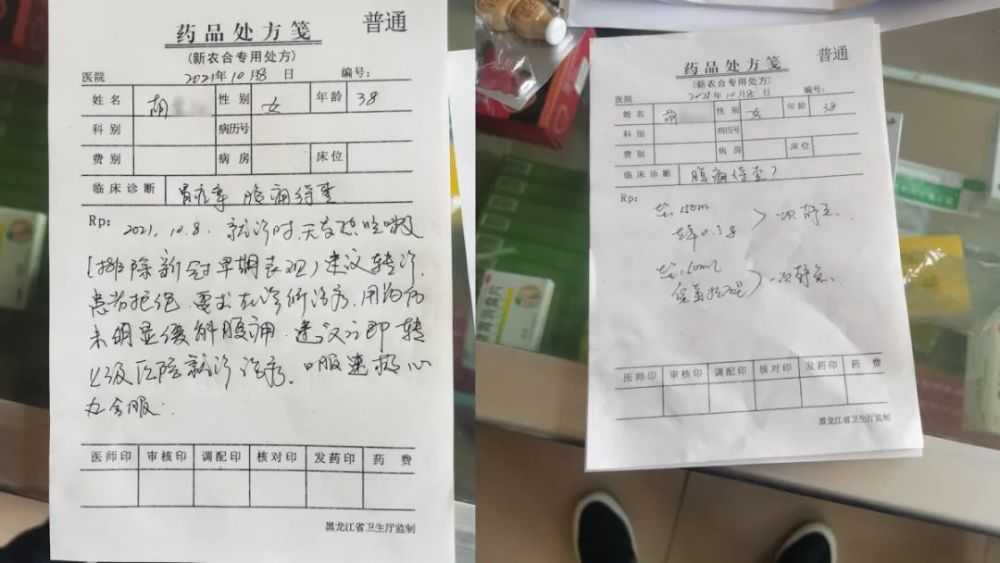 普通
药品处方笺
(新农合专用处方)
医院 2021年10月8日 编号:
姓名 胡 性别 女 年龄 38
科别 病历号
费别 病房 床位
临床诊断 腹痛待查
Rp: 2021.10.8. 就诊时无发热咳嗽
(排除新冠早期表现)建议转诊.
患者拒绝.要求在诊所诊疗.用药后
未明显缓解腹痛.建议立即转
上级医院就诊诊疗.口服速
医师印 审核印 调配印 核对印 发药印 药费
黑龙江省卫生厅监制
普通
药品处方笺
(新农合专用处方)
医院 2021年10月8日 编号:
姓名 胡 性别 女 年龄 38
科别 病历号
费别 病房 床位
临床诊断 腹痛待查?
Rp:
150ml
0.3g 一次静点.
150ml
一次静点.
医师印 审核印 调配印 核对印 发药印 药费
黑龙江省卫生厅监制